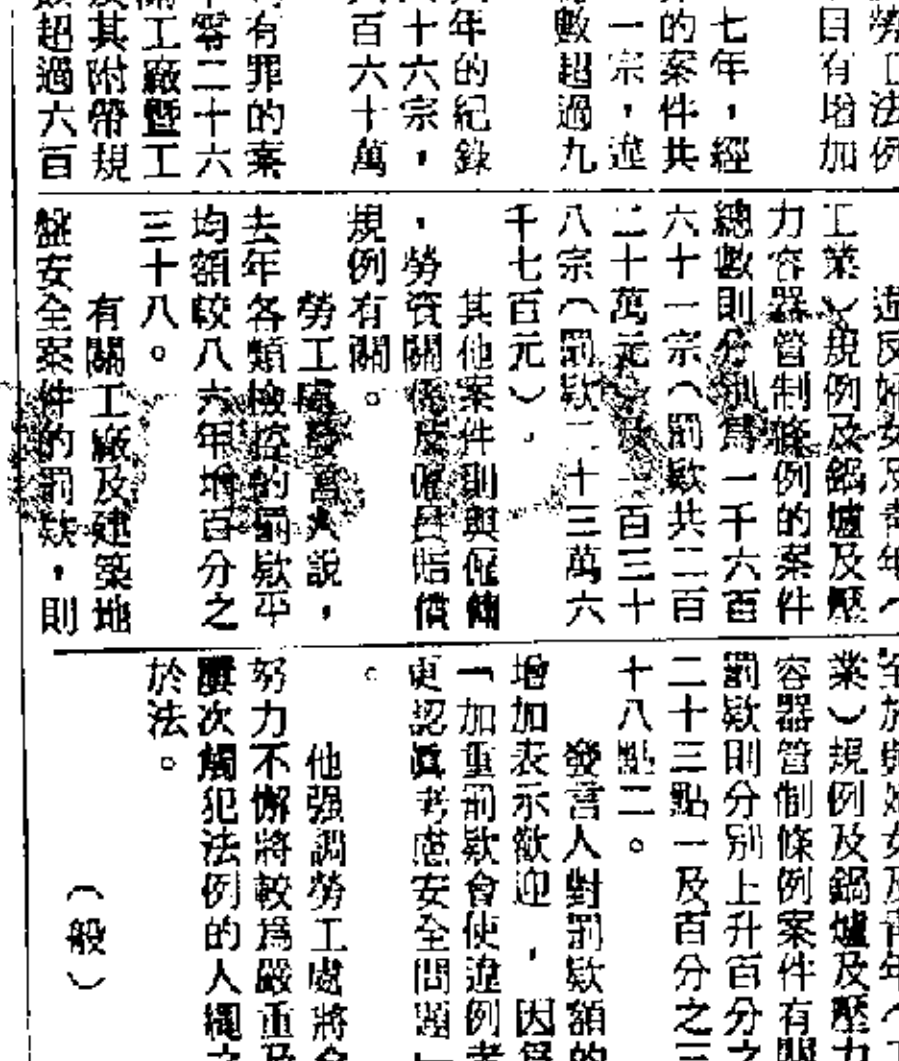 勞工法例
目有增加
七年，經
的案件共
一宗，違
數超過九
年的紀錄
十六宗，
百六十萬
有罪的案
零二十六
工廠暨工
其附帶規
超過六百
違反婦女及青年（
工業）規例及鍋爐及壓
力容器管制條例的案件
總數則分別為一千六百
六十一宗（罰款共二百
二十萬元）及一百三十
八宗（罰款二十三萬六
千七百元）。
其他案件則與僱傭
，勞資關係及僱員賠償
規例有關。
勞工處發言人說，
去年各類檢控的罰款平
均額較八六年增百分之
三十八。
有關工廠及建築地
盤安全案件的罰款，則
至於與婦女及青年（工
業）規例及鍋爐及壓力
容器管制條例案件有關
罰款則分別上升百分之
二十三點一及百分之三
十八點二。
發言人對罰款額的
增加表示歡迎，因為
加重罰款會使違例者
更認真考慮安全問題
。
他强調勞工處將會
努力不懈將較為嚴重及
屢次觸犯法例的人繩之
於法。
（般）